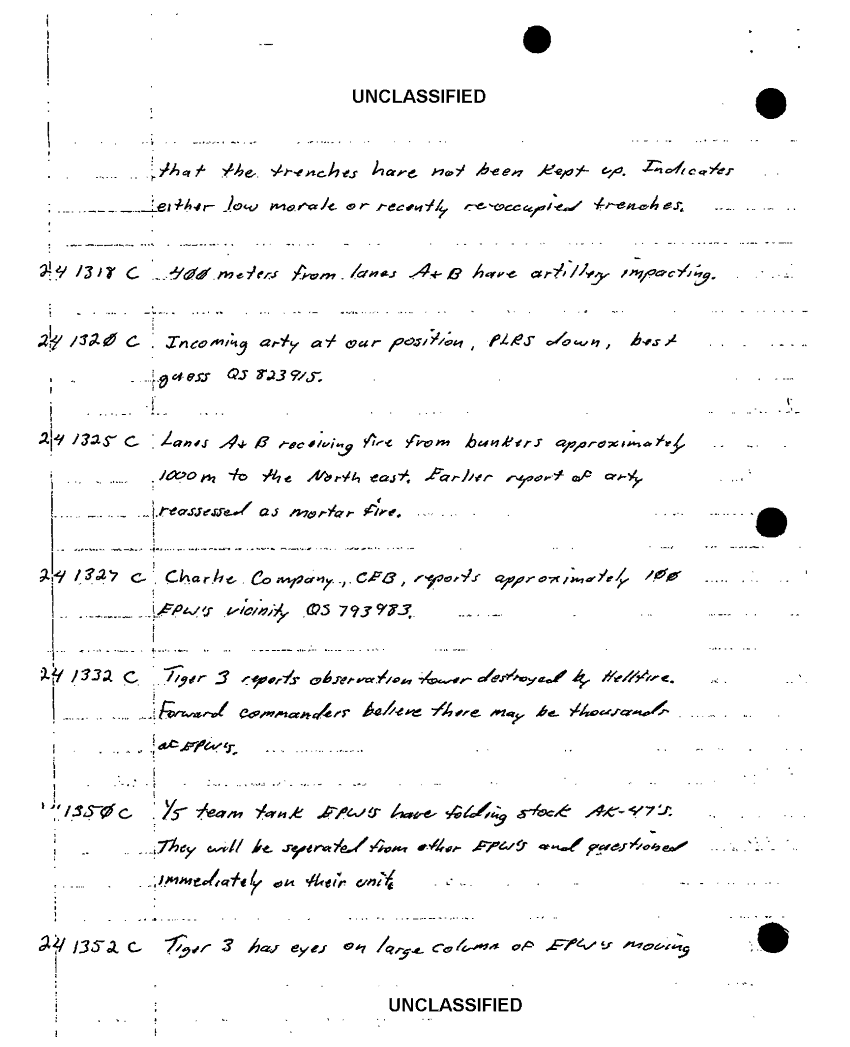 UNCLASSIFIED
that the trenches have not been kept up. Indicates
either low morale or recently re-occupied trenches.
24 1318 C 400 meters from lanes A+B have artillery impacting.
24 1320 C Incoming arty at our position, PLRS down, best
guess QS 823915.
24 1325 C Lanes A+B receiving fire from bunkers approximately
1000m to the North east. Earlier report of arty
reassessed as mortar fire.
24 1327 C Charlie Company, CEB, reports approximately 100
EPW's vicinity QS 793983.
24 1332 C Tiger 3 reports observation tower destroyed by Hellfire.
Forward commanders believe there may be thousands
of EPW's.
" 1350 C 1/5 team tank EPW's have folding stock AK-47's.
They will be seperated from other EPW's and questioned
immediately on their unit.
24 1352 C Tiger 3 has eyes on large column of EPW's moving
UNCLASSIFIED